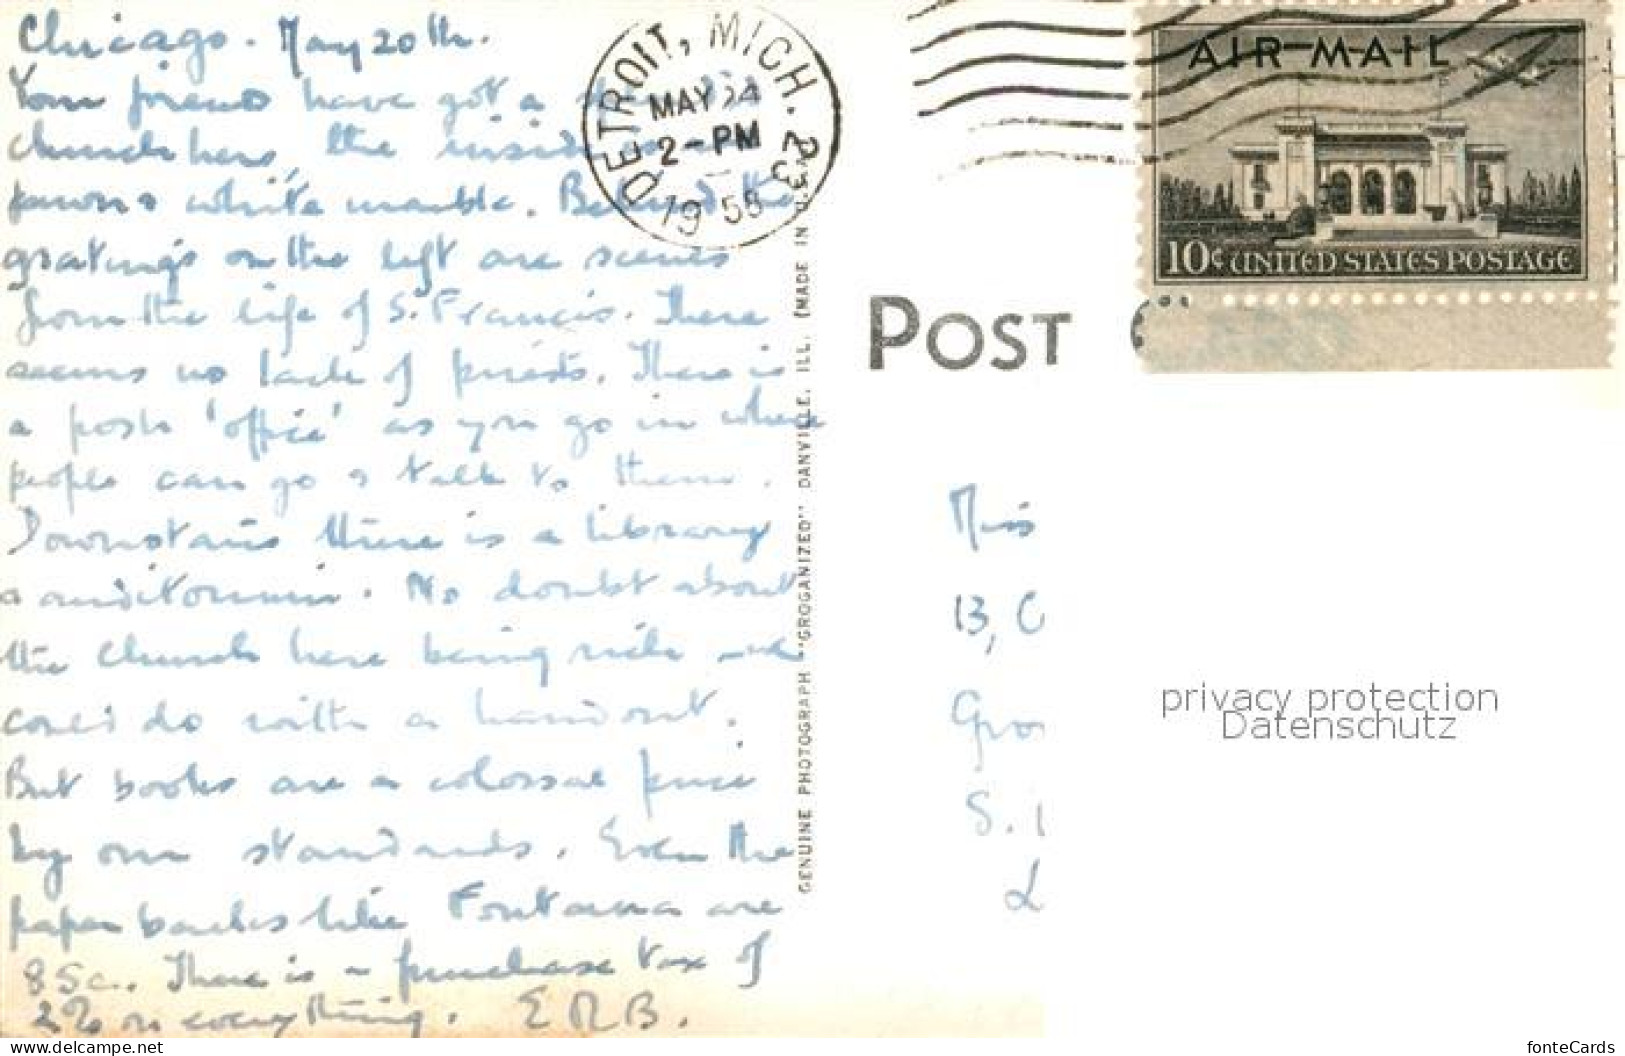 Chicago. May 20th.
Your friends have got a
church here, the inside is
pure white marble. Behind the
gratings on the left are scenes
from the life of S. Francis. There
seems no lack of priests. There is
a posh 'office' as you go in where
people can go & talk to them.
Downstairs there is a library
& auditorium. No doubt about
the church here being rich - we
could do with a handout.
But books are a colossal price
by our standards. Even the
paper backs like Fontana are
85c. There is a purchase tax of
2% on everything. E R B.
DETROIT, MICH. 23
MAY 24
2-PM
1955
AIR MAIL
10¢ UNITED STATES POSTAGE
POST
GENUINE PHOTOGRAPH "GROGANIZED" DANVILLE, ILL. (MADE IN U.S.A.
Miss
13, C
Gro
S.
L
privacy protection
Datenschutz
www.delcampe.net
fonteCards